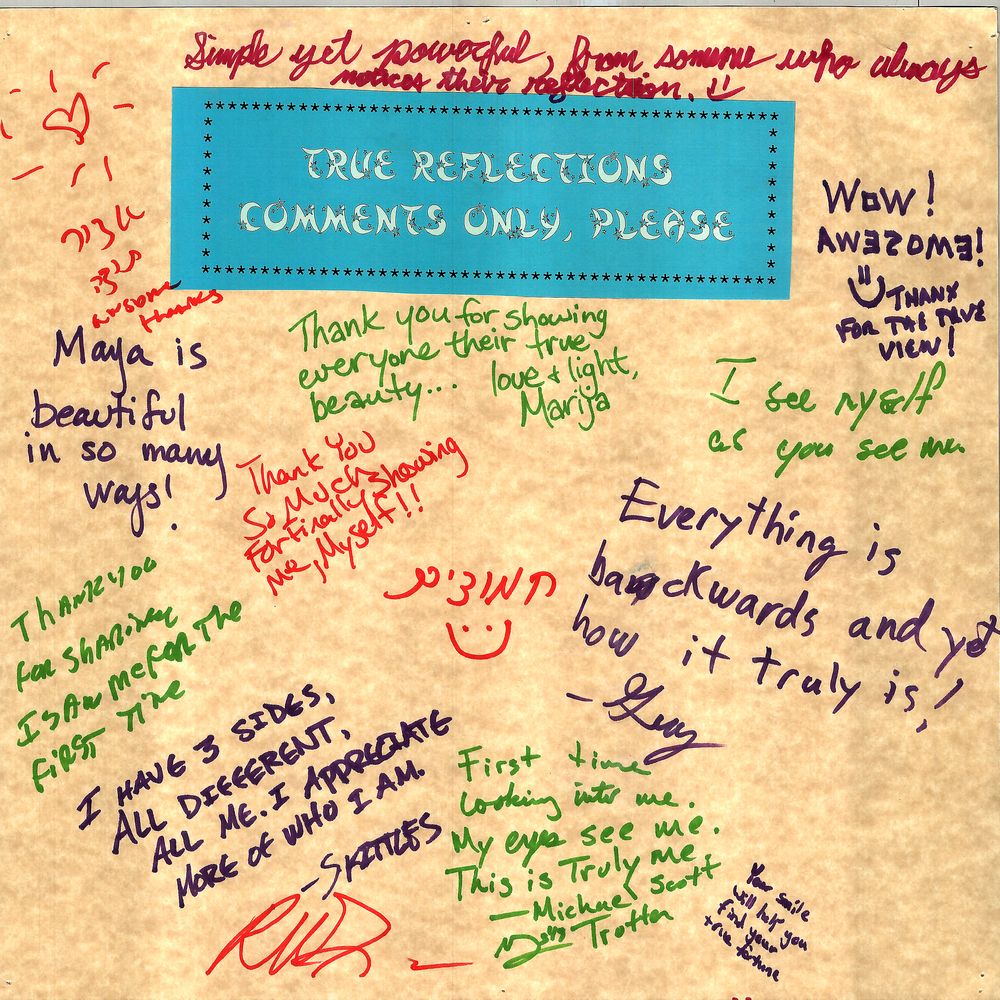 Simple yet powerful, from someone who always
notices their reflection.
TRUE REFLECTIONS
COMMENTS ONLY, PLEASE
WOW!
AWESOME!
THANX
FOR THE TRUE
VIEW!
awesome
thanks
Maya is
beautiful
in so many
ways!
Thank you for showing
everyone their true
beauty... love + light,
Marija
I see myself
as you see me.
Thank You
So Much
For Finally Showing
Me, Myself!!
Everything is
backwards and yet
how it truly is!
Thank you
for sharing
I saw me for the
first time
I HAVE 3 SIDES,
ALL DIFFERENT,
ALL ME. I APPRECIATE
MORE OF WHO I AM.
-SKITTLES
First time
looking into me.
My eyes see me.
This is Truly me.
— Michael Scott
Trotter
Your smile
will help you
find your
true fortune